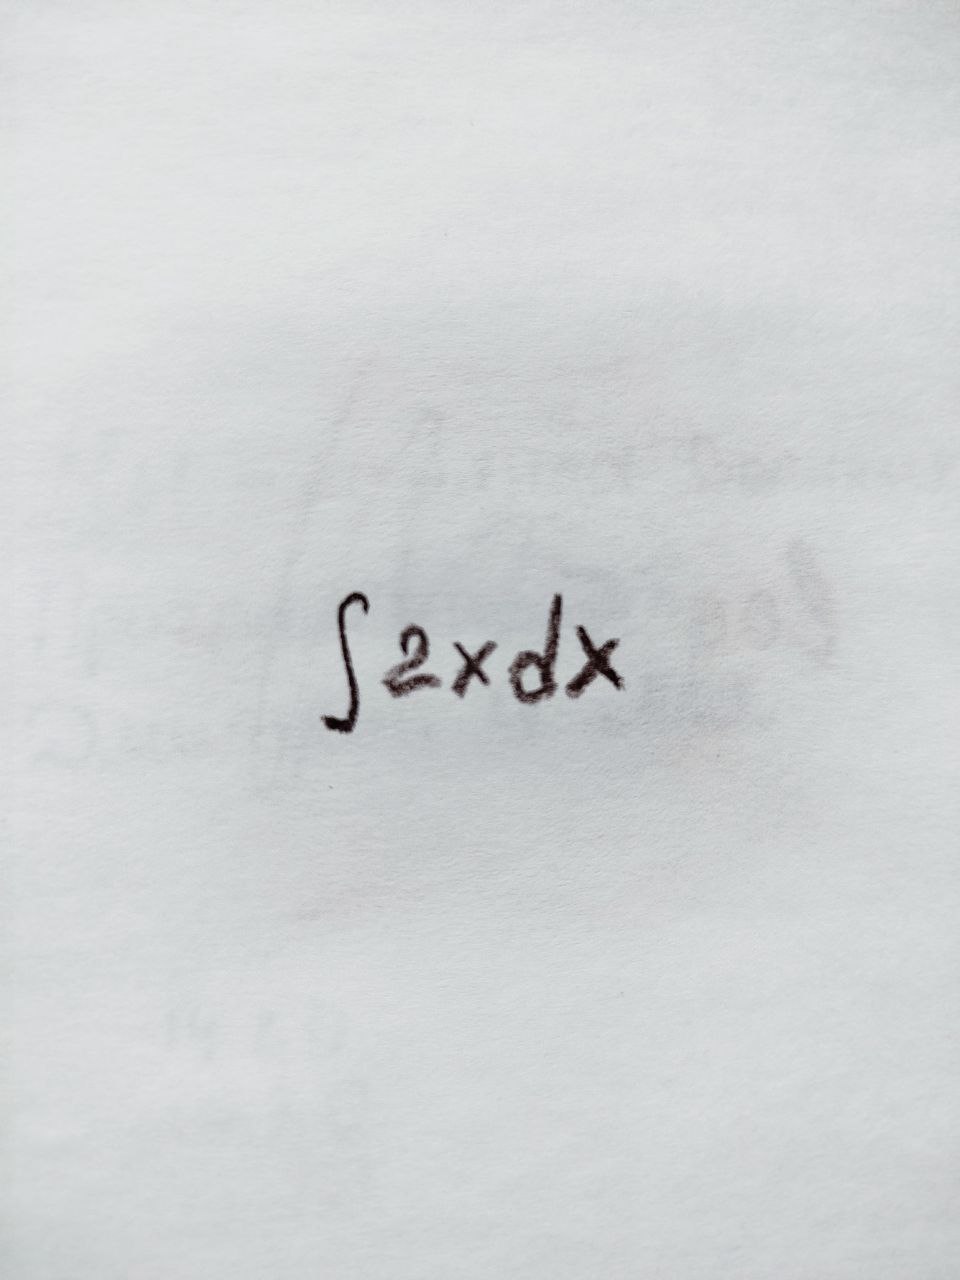 ∫2xdx